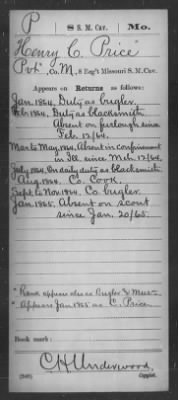 P 8 S. M. Cav. Mo.
Henry C. Price
Pvt, Co. M, 8 Reg't Missouri S. M. Cav.
Appears on Returns as follows:
Jan. 1864. Duty as bugler.
Feb. 1864. Duty as blacksmith.
Absent on furlough since
Feb. 12/64.
Mar. to May, 1864. Absent in confinement
in Ill. since Mch. 12/64.
July 1864. On daily duty as blacksmith
Aug. 1864. Co. Cook.
Sept. to Nov. 1864. Co. bugler.
Jan. 1865. Absent on scout
since Jan. 20/65.
Rank appears also as Bugler &
Appears Jan 1865 as C. Price
Book mark:
C H Underwood.
Copyist.